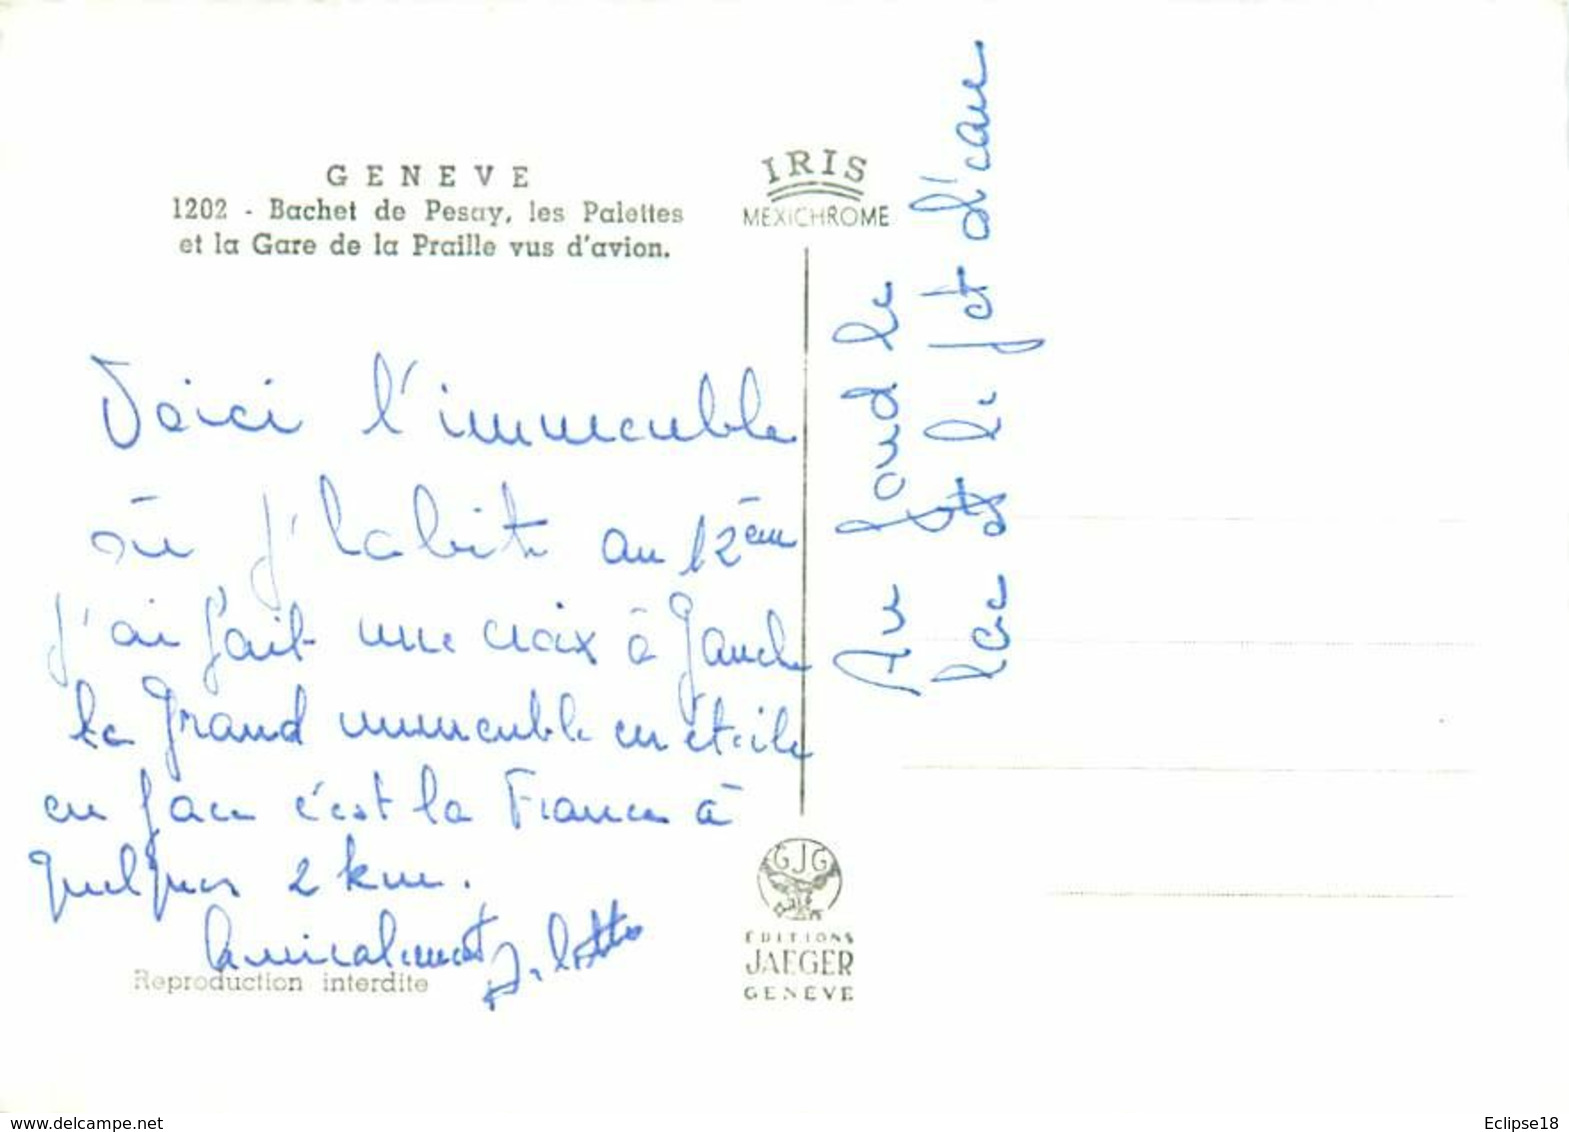 GENEVE
1202 - Bachet de Pesay, les Palettes
et la Gare de la Praille vus d'avion.
IRIS
MEXICHROME
Voici l'immeuble
où j'habite au 12èm
j'ai fait une croix à gauche
le grand immeuble en étoile
en face c'est la France à
quelques 2 km.
amicalement
Reproduction interdite
Au fond le
lac et le jet d'eau
GJG
EDITIONS
JAEGER
GENEVE
www.delcampe.net
Eclipse18